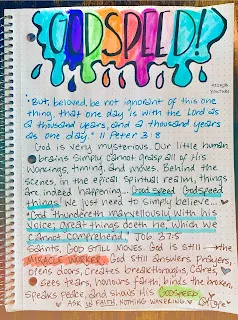 GODSPEED!
YOUTUBE
"But, beloved, be not ignorant of this one
thing, that one day is with the Lord as
a thousand years, and a thousand years
as one day." II Peter 3:8
God is very mysterious. Our little human
brains simply cannot grasp all of His
workings, timing, and moves. Behind the
scenes, in the epical spiritual realms, things
are indeed happening... Good speed Godspeed
things. We just need to simply believe...
"God thundereth marvellously with his
voice; great things doeth he, which we
cannot comprehend." Job 37:5
Saints, God still moves. God is still the
MIRACLE WORKER. God still answers prayers,
opens doors, creates breakthroughs, cares,
sees tears, honours faith, binds the broken,
speaks peace, and shows His GODSPEED
ASK IN FAITH, NOTHING WAVERING